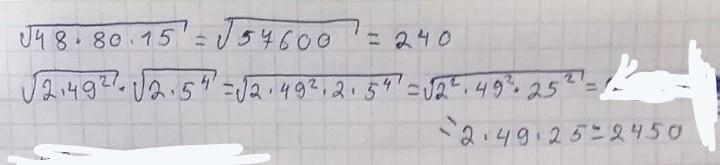 √48·80·15 = √57600 = 240
√2·49²·√2·5⁴ = √2·49²·2·5⁴ = √2²·49²·25² =
= 2·49·25 = 2450